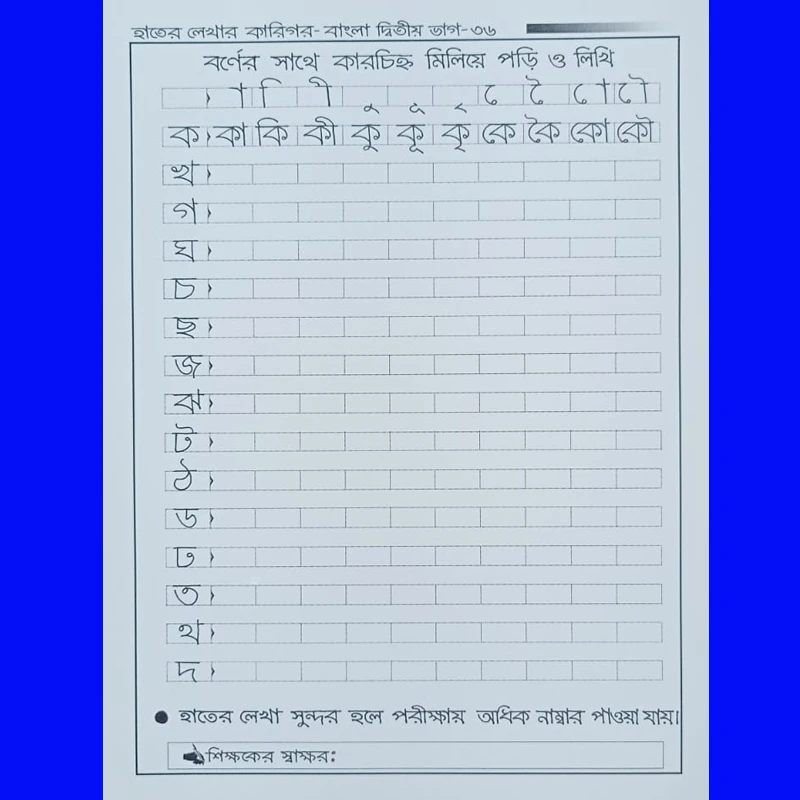 হাতের লেখার কারিগর- বাংলা দ্বিতীয় ভাগ-৩৬
বর্ণের সাথে কারচিহ্ন মিলিয়ে পড়ি ও লিখি
› া ি ী ু ূ ৃ ে ৈ ো ৌ
ক › কা কি কী কু কূ কৃ কে কৈ কো কৌ
খ ›
গ ›
ঘ ›
চ ›
ছ ›
জ ›
ঝ ›
ট ›
ঠ ›
ড ›
ঢ ›
ত ›
থ ›
দ ›
● হাতের লেখা সুন্দর হলে পরীক্ষায় অধিক নাম্বার পাওয়া যায়।
শিক্ষকের স্বাক্ষর: